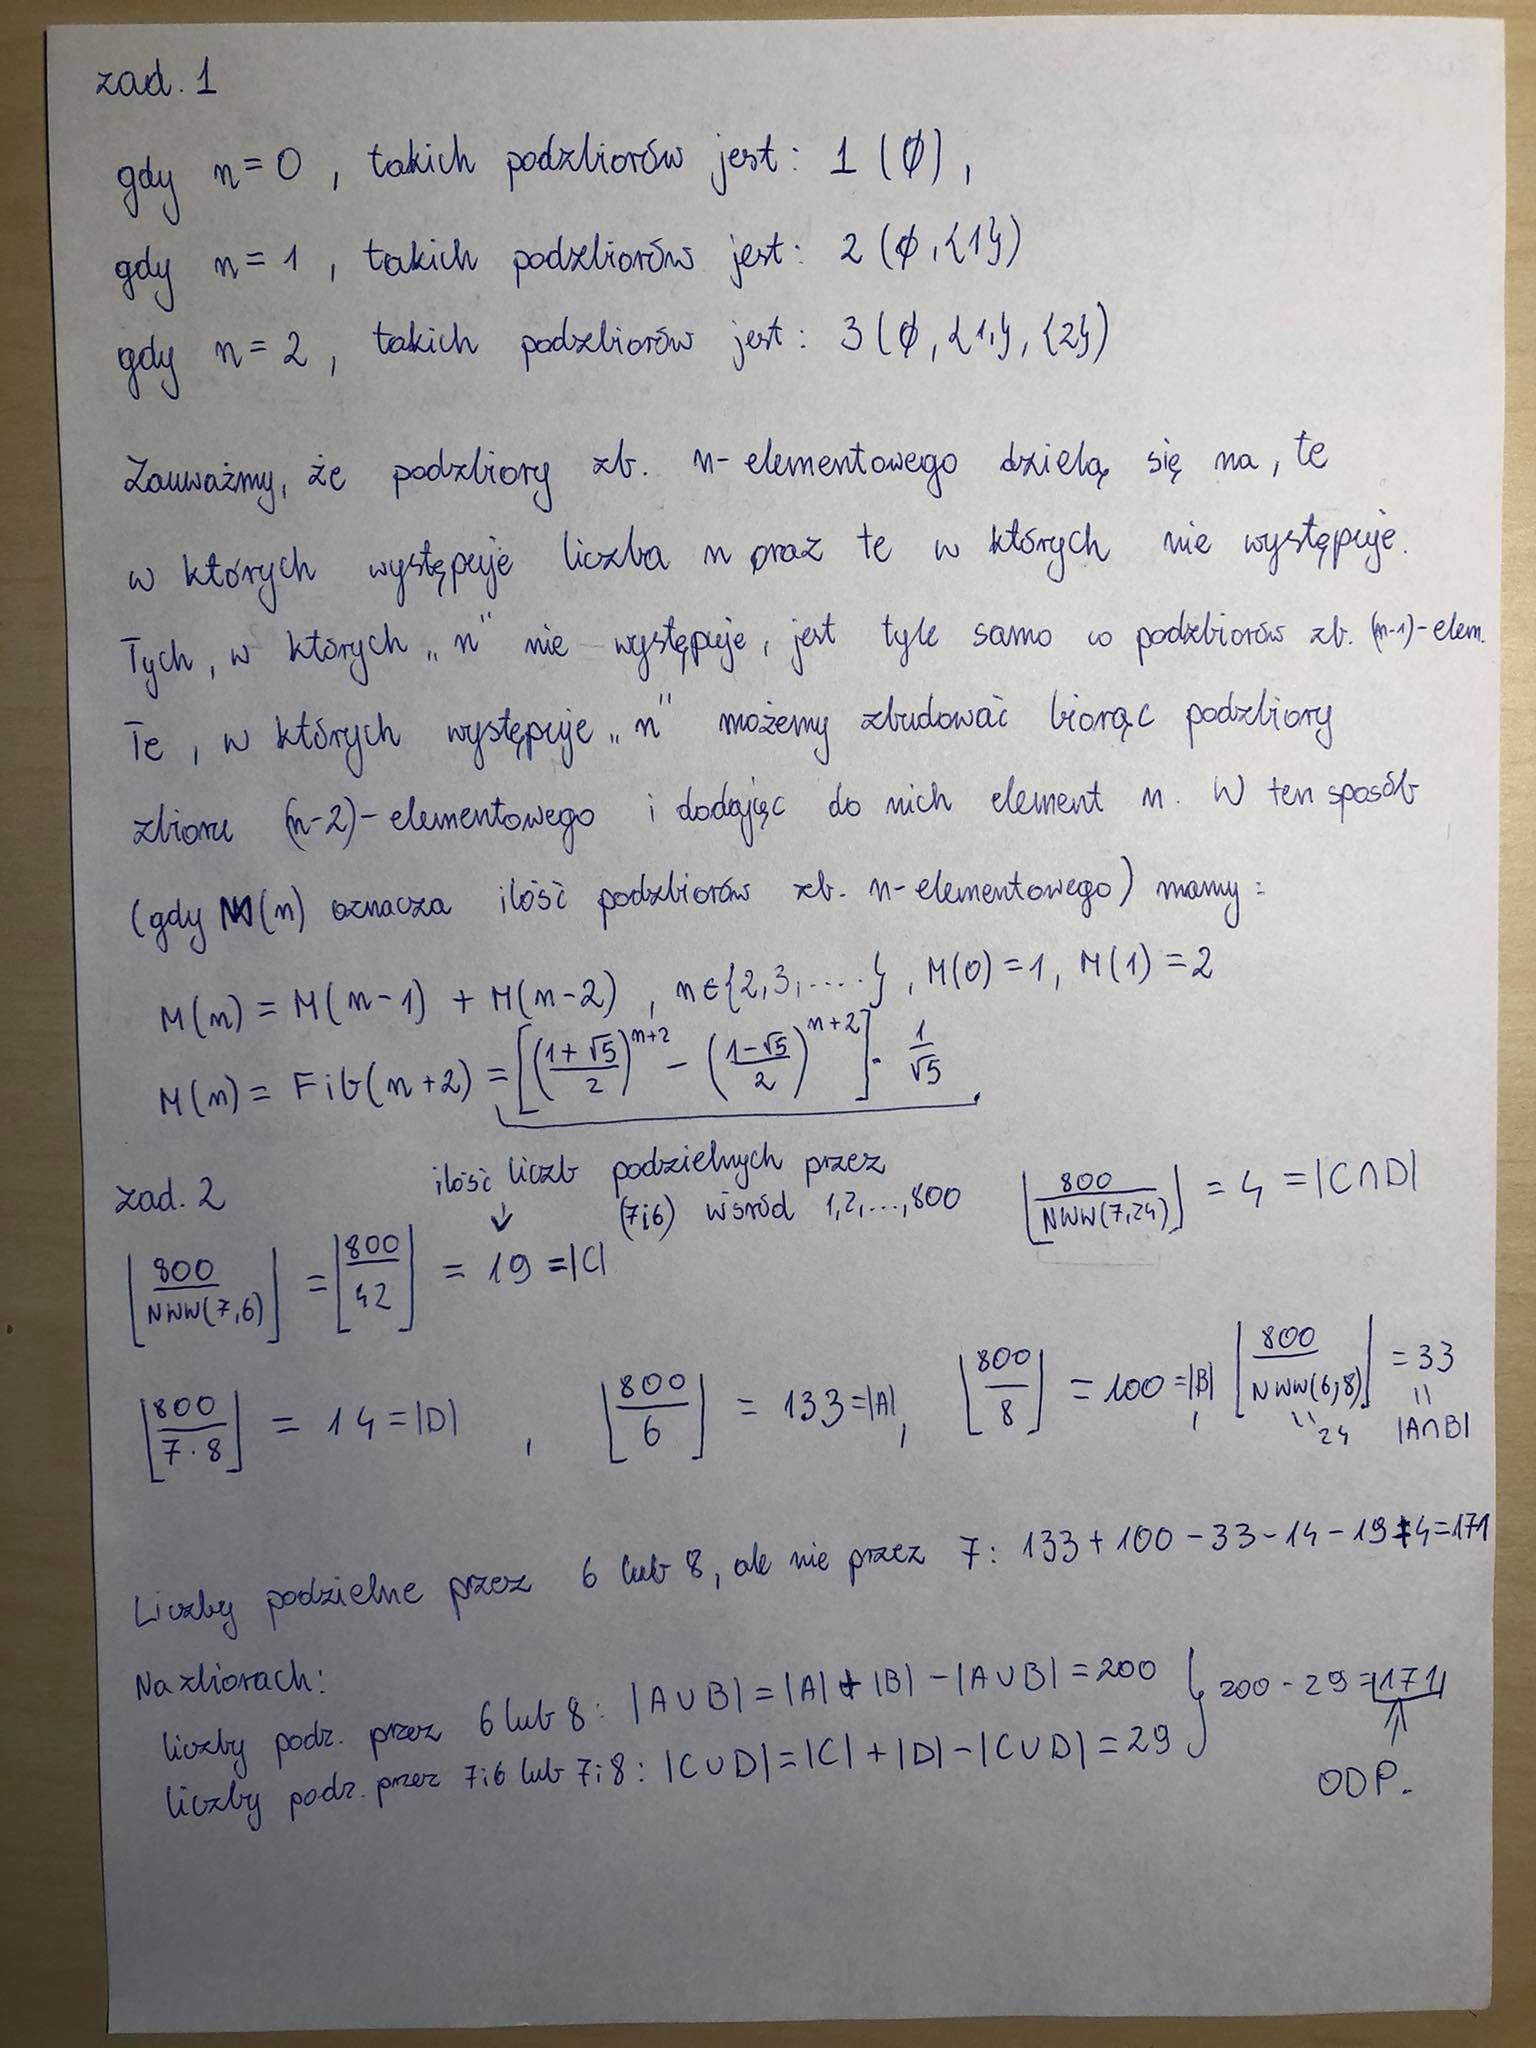 zad. 1
gdy n=0, takich podzbiorów jest: 1 (∅),
gdy n=1, takich podzbiorów jest: 2 (∅,{1})
gdy n=2, takich podzbiorów jest: 3 (∅,{1},{2})
Zauważmy, że podzbiory zb. n-elementowego dzielą się na, te
w których występuje liczba n oraz te w których nie występuje.
Tych, w których „n" nie występuje, jest tyle samo co podzbiorów zb. (n-1)-elem.
Te, w których występuje „n" możemy zbudować biorąc podzbiory
zbioru (n-2)-elementowego i dodając do nich element n. W ten sposób
(gdy M(n) oznacza ilość podzbiorów zb. n-elementowego) mamy:
M(n) = M(n-1) + M(n-2), n∈{2,3,....}, M(0)=1, M(1)=2
M(n) = Fib(n+2) = [((1+√5)/2)^(n+2) - ((1-√5)/2)^(n+2)] · 1/√5.
zad. 2
ilość liczb podzielnych przez
↓ (7i6) wśród 1,2,...,800
⌊800/NWW(7,24)⌋ = 4 = |C∩D|
⌊800/NWW(7,6)⌋ = ⌊800/42⌋ = 19 = |C|
⌊800/7·8⌋ = 14 = |D|, ⌊800/6⌋ = 133 = |A|, ⌊800/8⌋ = 100 = |B|, ⌊800/NWW(6,8)⌋ = 33
" 24 " |A∩B|
Liczby podzielne przez 6 lub 8, ale nie przez 7: 133+100-33-14-19+4=171
Na zbiorach:
liczby podz. przez 6 lub 8: |A∪B| = |A| + |B| - |A∪B| = 200 } 200-29=171
liczby podz. przez 7i6 lub 7i8: |C∪D| = |C| + |D| - |C∪D| = 29
↑
ODP.